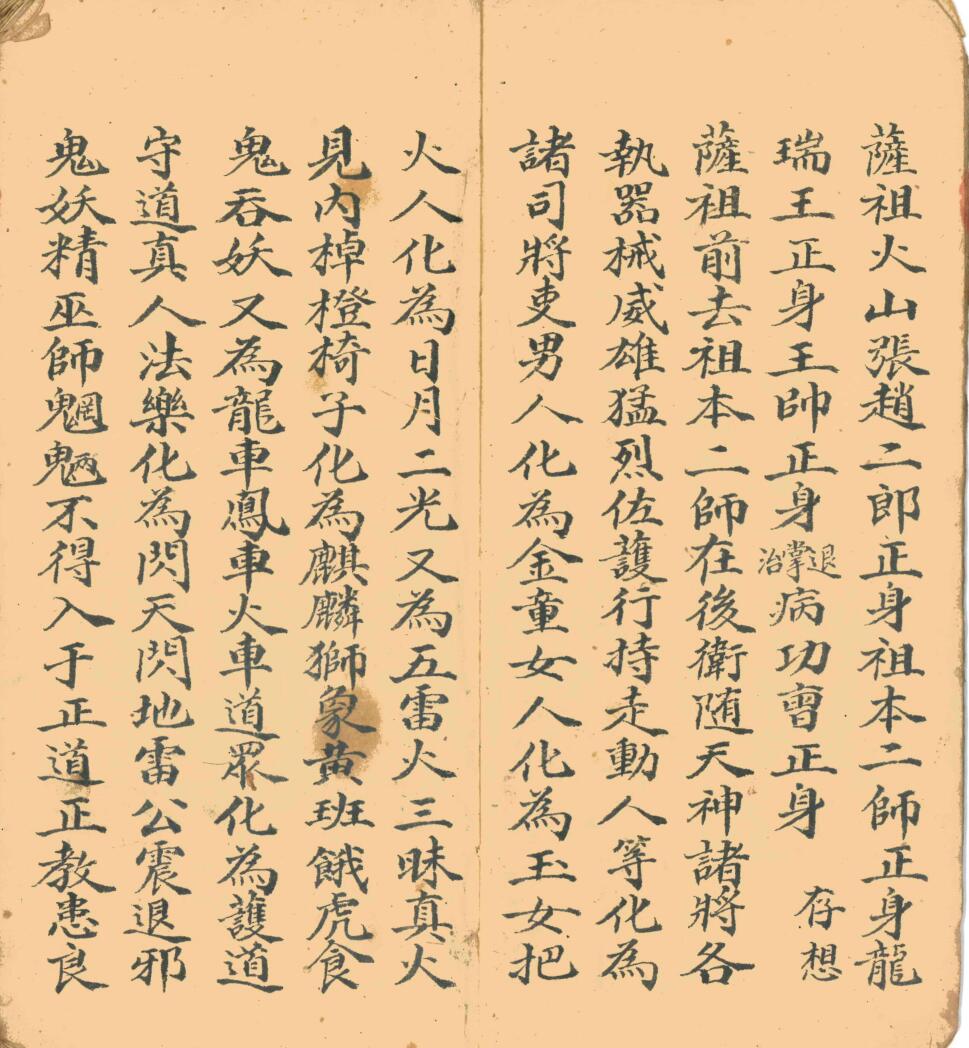 薩祖火山張趙二郎正身祖本二師正身龍
瑞王正身王帥正身退掌治病功曺正身　存想
薩祖前去祖本二師在後衛随天神諸將各
執器械威雄猛烈佐護行持走動人等化為
諸司將吏男人化為金童女人化為玉女把
火人化為日月二光又為五雷火三昧真火
見内棹橙椅子化為麒麟獅象黄班餓虎食
鬼吞妖又為龍車鳳車火車道眾化為護道
守道真人法樂化為閃天閃地雷公震退邪
鬼妖精巫師魍魎不得入于正道正教患良